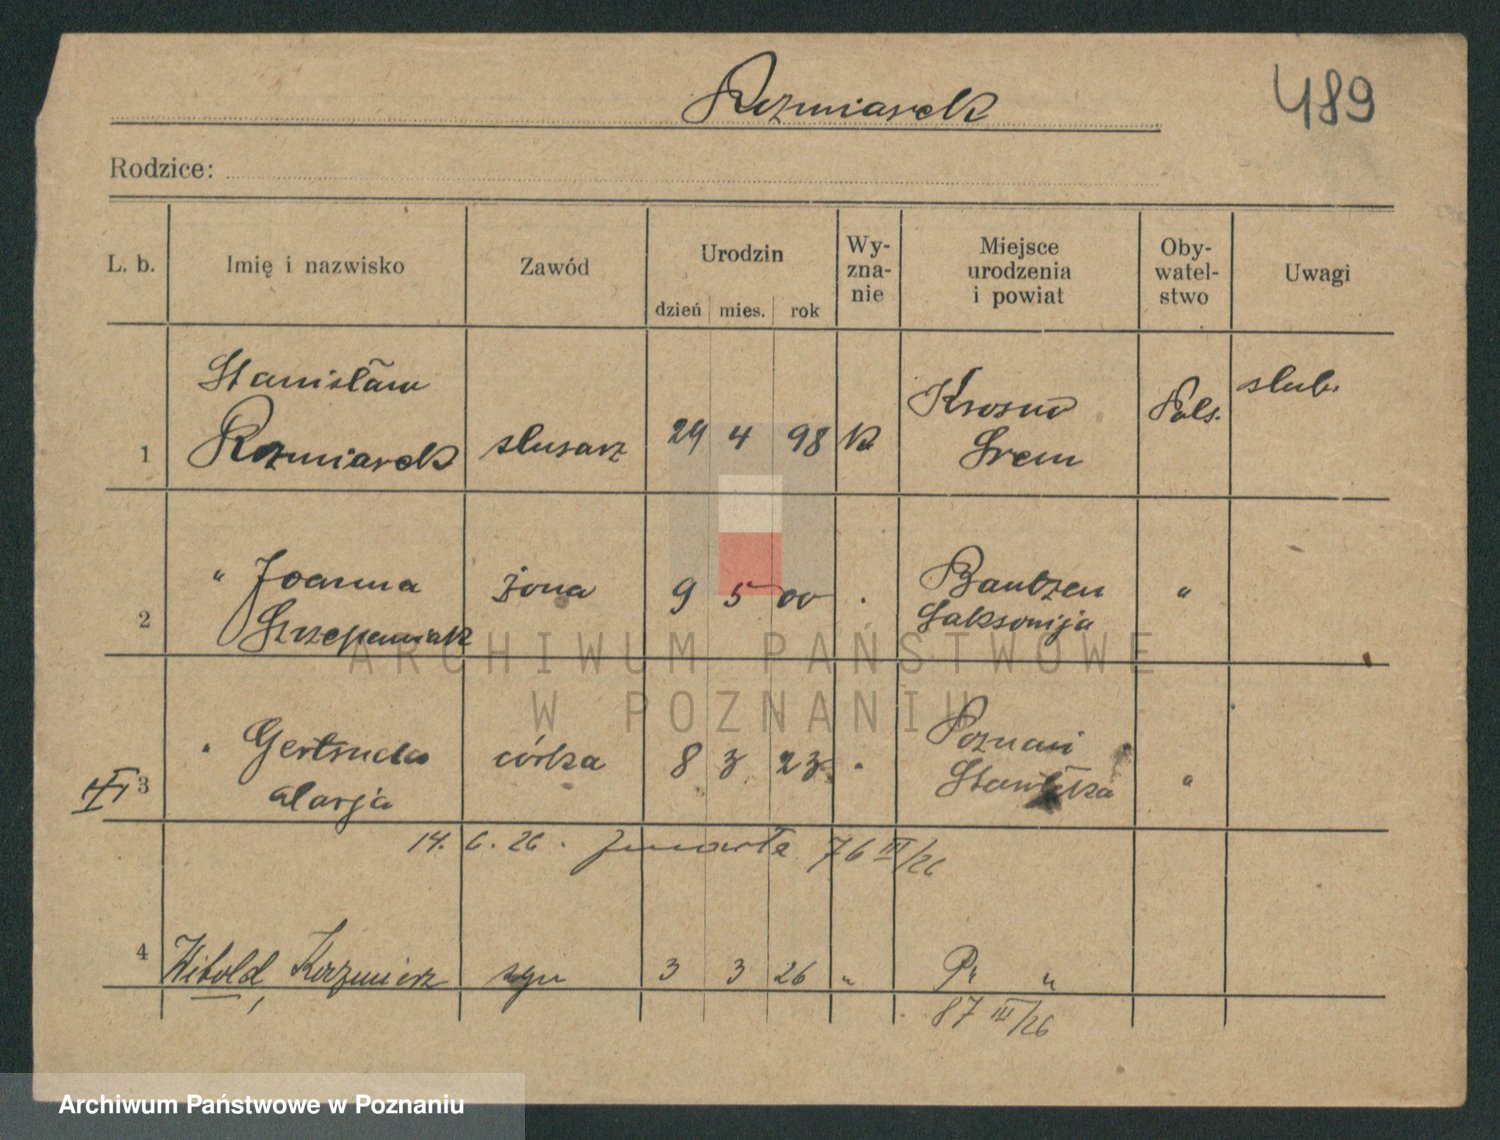 Rozmiarek
489
Rodzice:
L. b.
Imię i nazwisko
Zawód
Urodzin
dzień mies. rok
Wy-
zna-
nie
Miejsce
urodzenia
i powiat
Oby-
watel-
stwo
Uwagi
1
Stanisław
Rozmiarek
slusarz
29 4 98
k
Krosno
Srem
Pols.
slub.
2
" Joanna
Szczepaniak
żona
9 5 00
.
Bautzen
Saksonija
"
3
" Gertruda
Marja
córka
8 3 23
"
Poznań
"
14. 6. 26. zmarła 76 III/26
4
Witold, Kazimierz
syn
3 3 26
"
P. "
87 III/26
ARCHIWUM PAŃSTWOWE
W POZNANIU
Archiwum Państwowe w Poznaniu